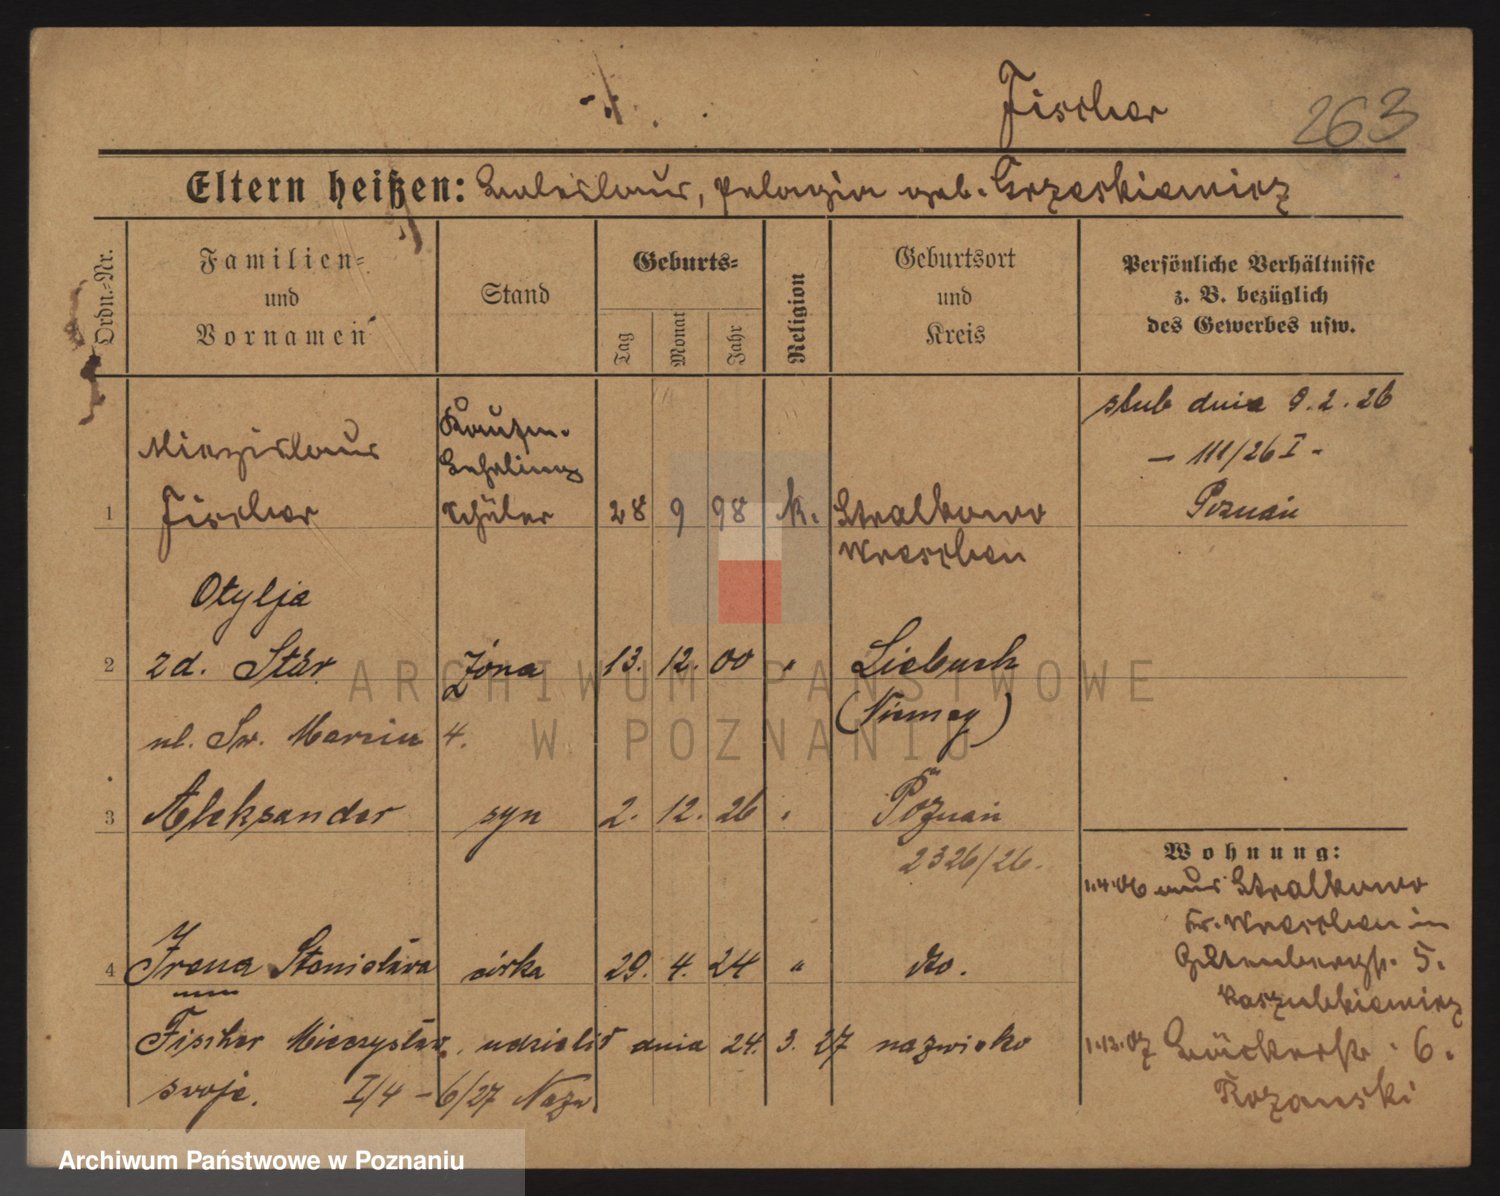 Fischer
263
Eltern heißen: Boleslaus, Pelagia geb. Grzeskiewicz
Ordn.-Nr.
Familien- und Vornamen
Stand
Geburts-
Tag
Monat
Jahr
Religion
Geburtsort und Kreis
Persönliche Verhältnisse z. B. bezüglich des Gewerbes usw.
ślub dnia 9.2.26
— 111/26 I -
Poznań
1 Miezislaus Fischer
Kaufm. Lehrling
Schüler
28 9 98 k. Stralkowo
Wreschen
Otylja
2 zd. Stär żona 13. 12. 00 " Liebusch
(Niemcy)
ul. Św. Marcin 4.
3 Aleksander syn 2. 12. 26 " Poznań
2326/26.
4 Irena Stanisława córka 29. 4. 24 " dto.
Fischer Mieczysław, udzielił dnia 24. 3. 27 nazwisko
swoje. I/4 - 6/27 Nazw
Wohnung:
1.4.06 aus Stralkowo
Kr. Wreschen in
Gutenbergstr. 5.
Kaszubkiewicz
1.12.07 Bäckerstr. 6.
Rozanski
ARCHIWUM PAŃSTWOWE
W POZNANIU
Archiwum Państwowe w Poznaniu